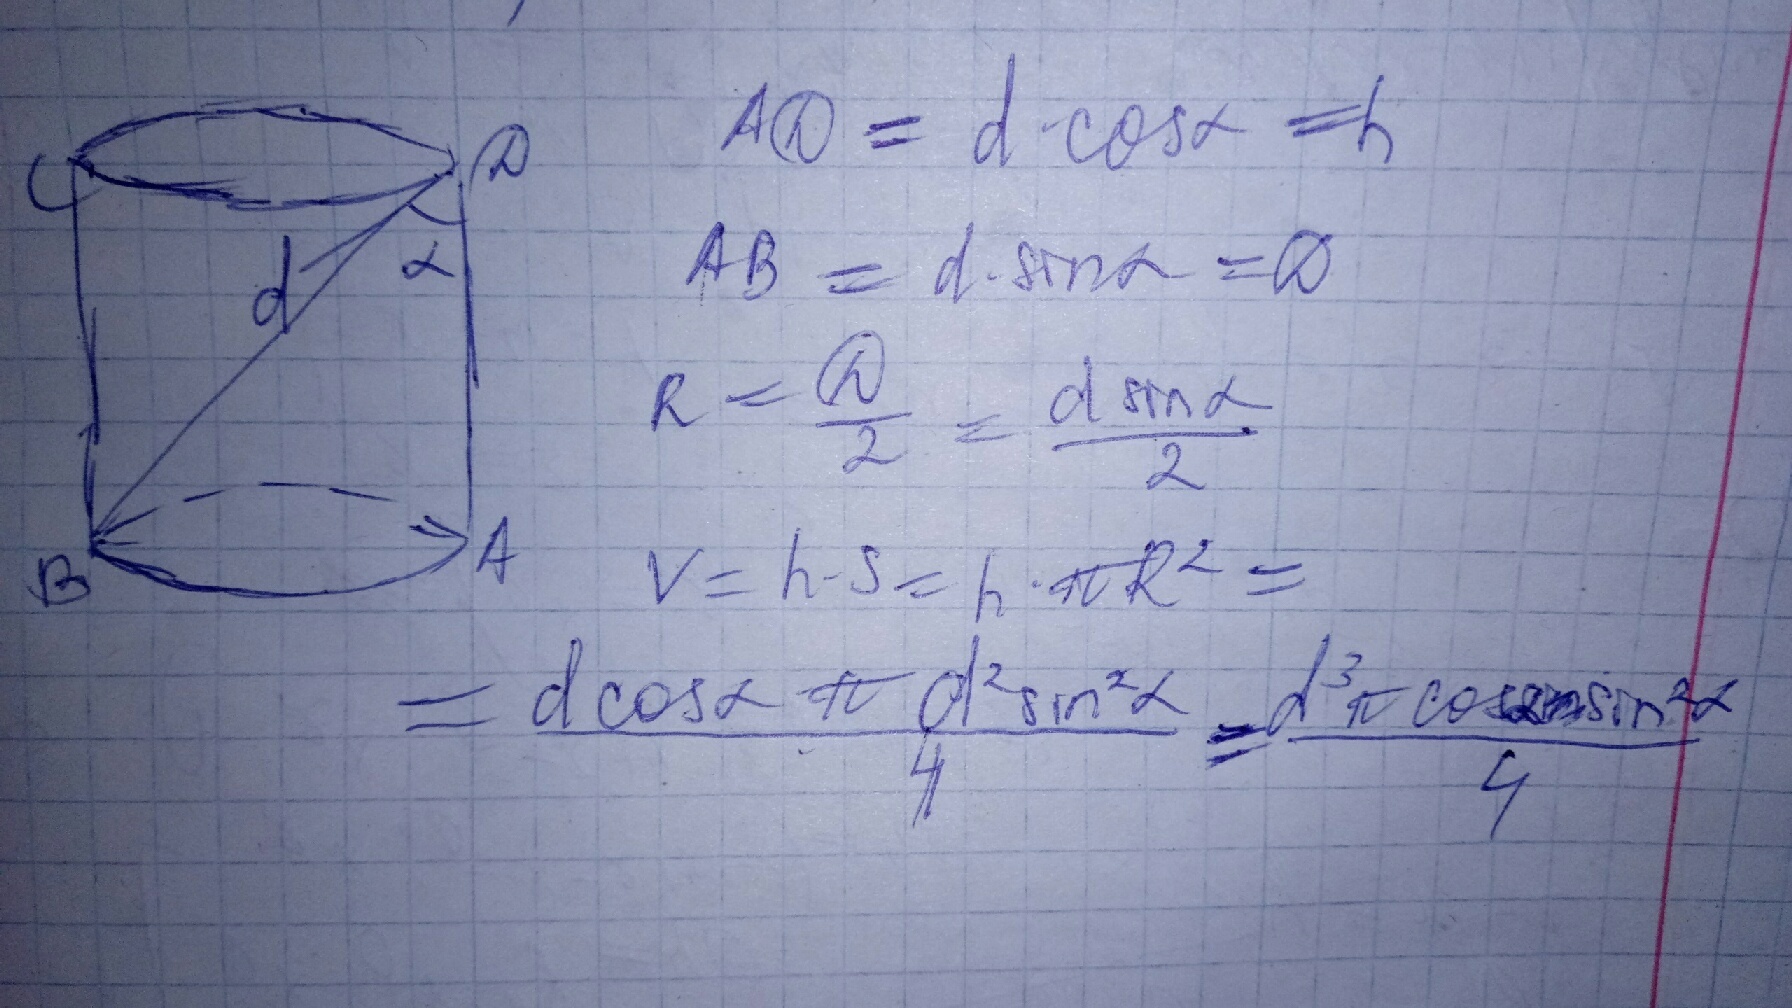 C D
d α
B A
AD = d·cosα = h
AB = d·sinα = D
R = D/2 = d sinα/2
V = h·S = h·πR² =
= d cosα π d² sin²α/4 = d³π cosα sin²α/4